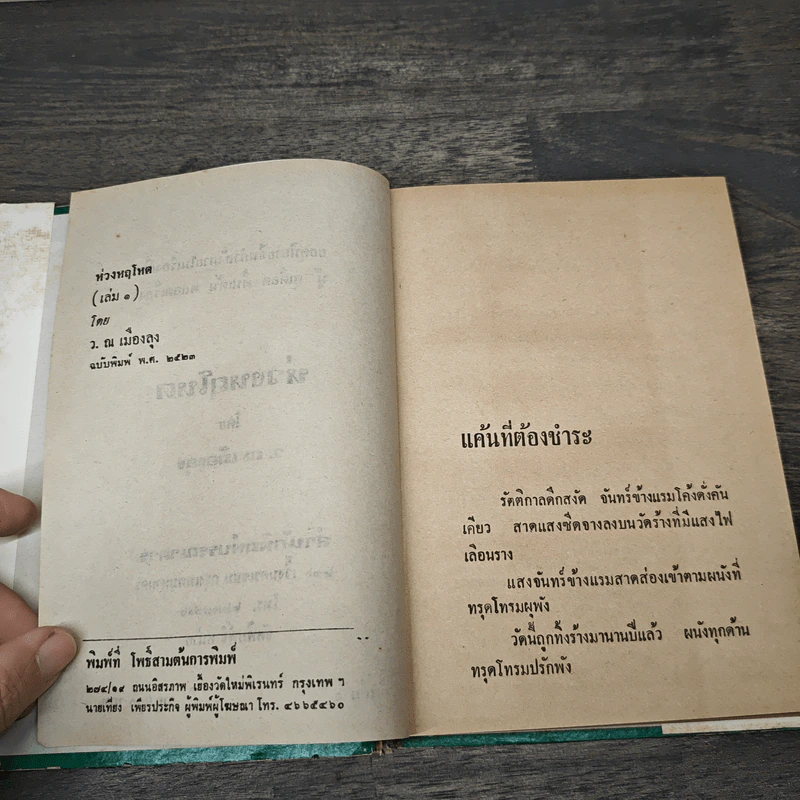 ห่วงหฤโหด
(เล่ม ๑)
โดย
ว. ณ เมืองลุง
ฉบับพิมพ์ พ.ศ. ๒๕๒๓
พิมพ์ที่ โพธิ์สามต้นการพิมพ์
๒๘๔/๑๙ ถนนอิสรภาพ เยื้องวัดใหม่พิเรนทร์ กรุงเทพ ฯ
นายเที่ยง เพียรประกิจ ผู้พิมพ์ผู้โฆษณา โทร. ๔๖๖๕๔๖๐
แค้นที่ต้องชำระ
รัตติกาลดึกสงัด จันทร์ข้างแรมโค้งดั่งคัน
เคียว สาดแสงซีดจางลงบนวัดร้างที่มีแสงไฟ
เลือนราง
แสงจันทร์ข้างแรมสาดส่องเข้าตามผนังที่
ทรุดโทรมผุพัง
วัดนี้ถูกทิ้งร้างมานานปีแล้ว ผนังทุกด้าน
ทรุดโทรมปรักพัง